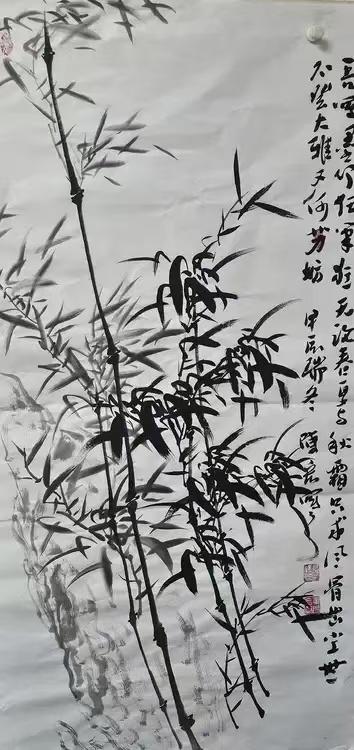 吾画墨竹任笔狂无论春夏与秋霜只求风骨出尘世
不登大雅又何妨 甲辰瑞冬